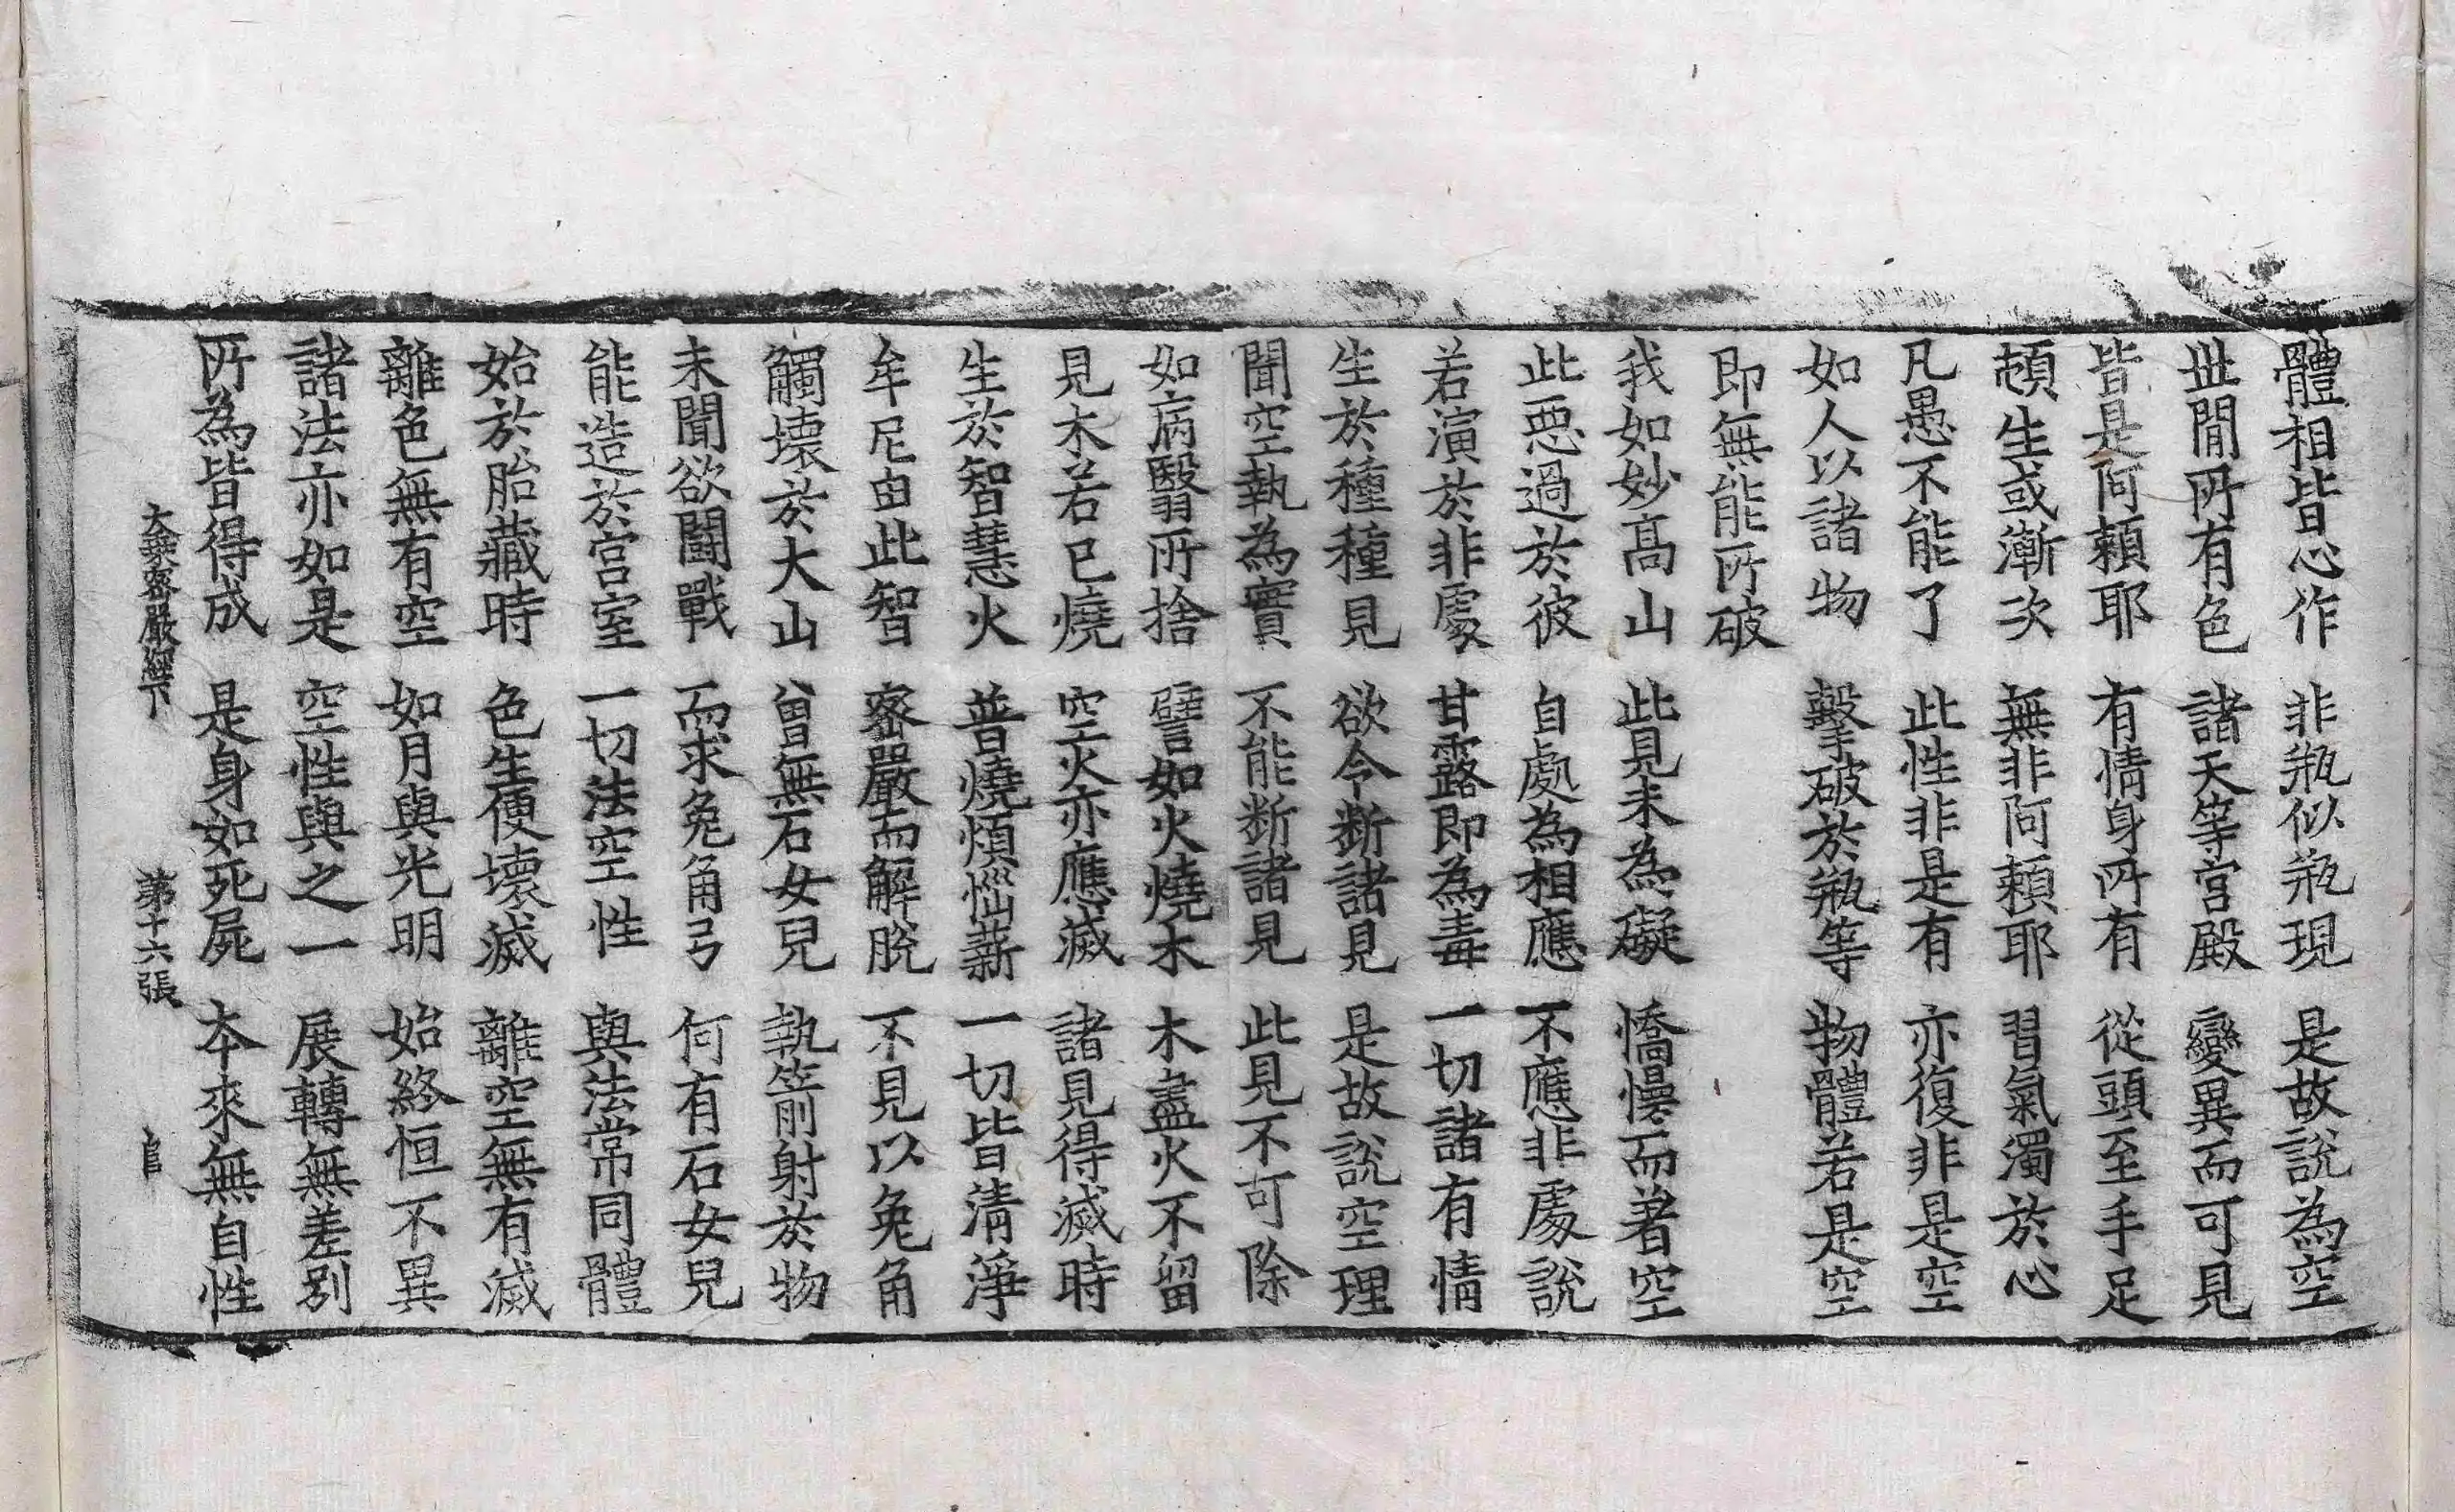 體相皆心作 非瓶似瓶現 是故說為空
世間所有色 諸天等宮殿 變異而可見
皆是阿賴耶 有情身所有 從頭至手足
頓生或漸次 無非阿賴耶 習氣濁於心
凡愚不能了 此性非是有 亦復非是空
如人以諸物 擊破於瓶等 物體若是空
即無能所破
我如妙高山 此見未為礙 憍慢而著空
此惡過於彼 自處為相應 不應非處說
若演於非處 甘露即為毒 一切諸有情
生於種種見 欲令斷諸見 是故說空理
聞空執為實 不能斷諸見 此見不可除
如病翳所捨 譬如火燒木 木盡火不留
見木若已燒 空火亦應滅 諸見得滅時
生於智慧火 普燒煩惱薪 一切皆清淨
牟尼由此智 密嚴而解脫 不見以兔角
觸壞於大山 曾無石女兒 執箭射於物
未聞欲鬪戰 而求兔角弓 何有石女兒
能造於宮室 一切法空性 與法常同體
始於胎藏時 色生便壞滅 離空無有滅
離色無有空 如月與光明 始終恒不異
諸法亦如是 空性與之一 展轉無差別
所為皆得成 是身如死屍 本來無自性
大乘密嚴經下 第十六張